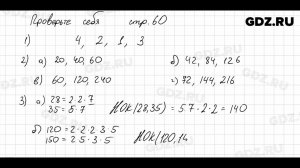 GDZ.RU
Проверьте себя стр. 60
1) 4, 2, 1, 3
2) а) 20, 40, 60 б) 42, 84, 126
в) 60, 120, 240 г) 72, 144, 216
3) а) 28 = 2·2·7
35 = 5·7
НОК(28,35) = 5·7·2·2 = 140
б) 120 = 2·2·2·3·5
150 = 2·5·3·5
НОК(120,1
GDZ.RU